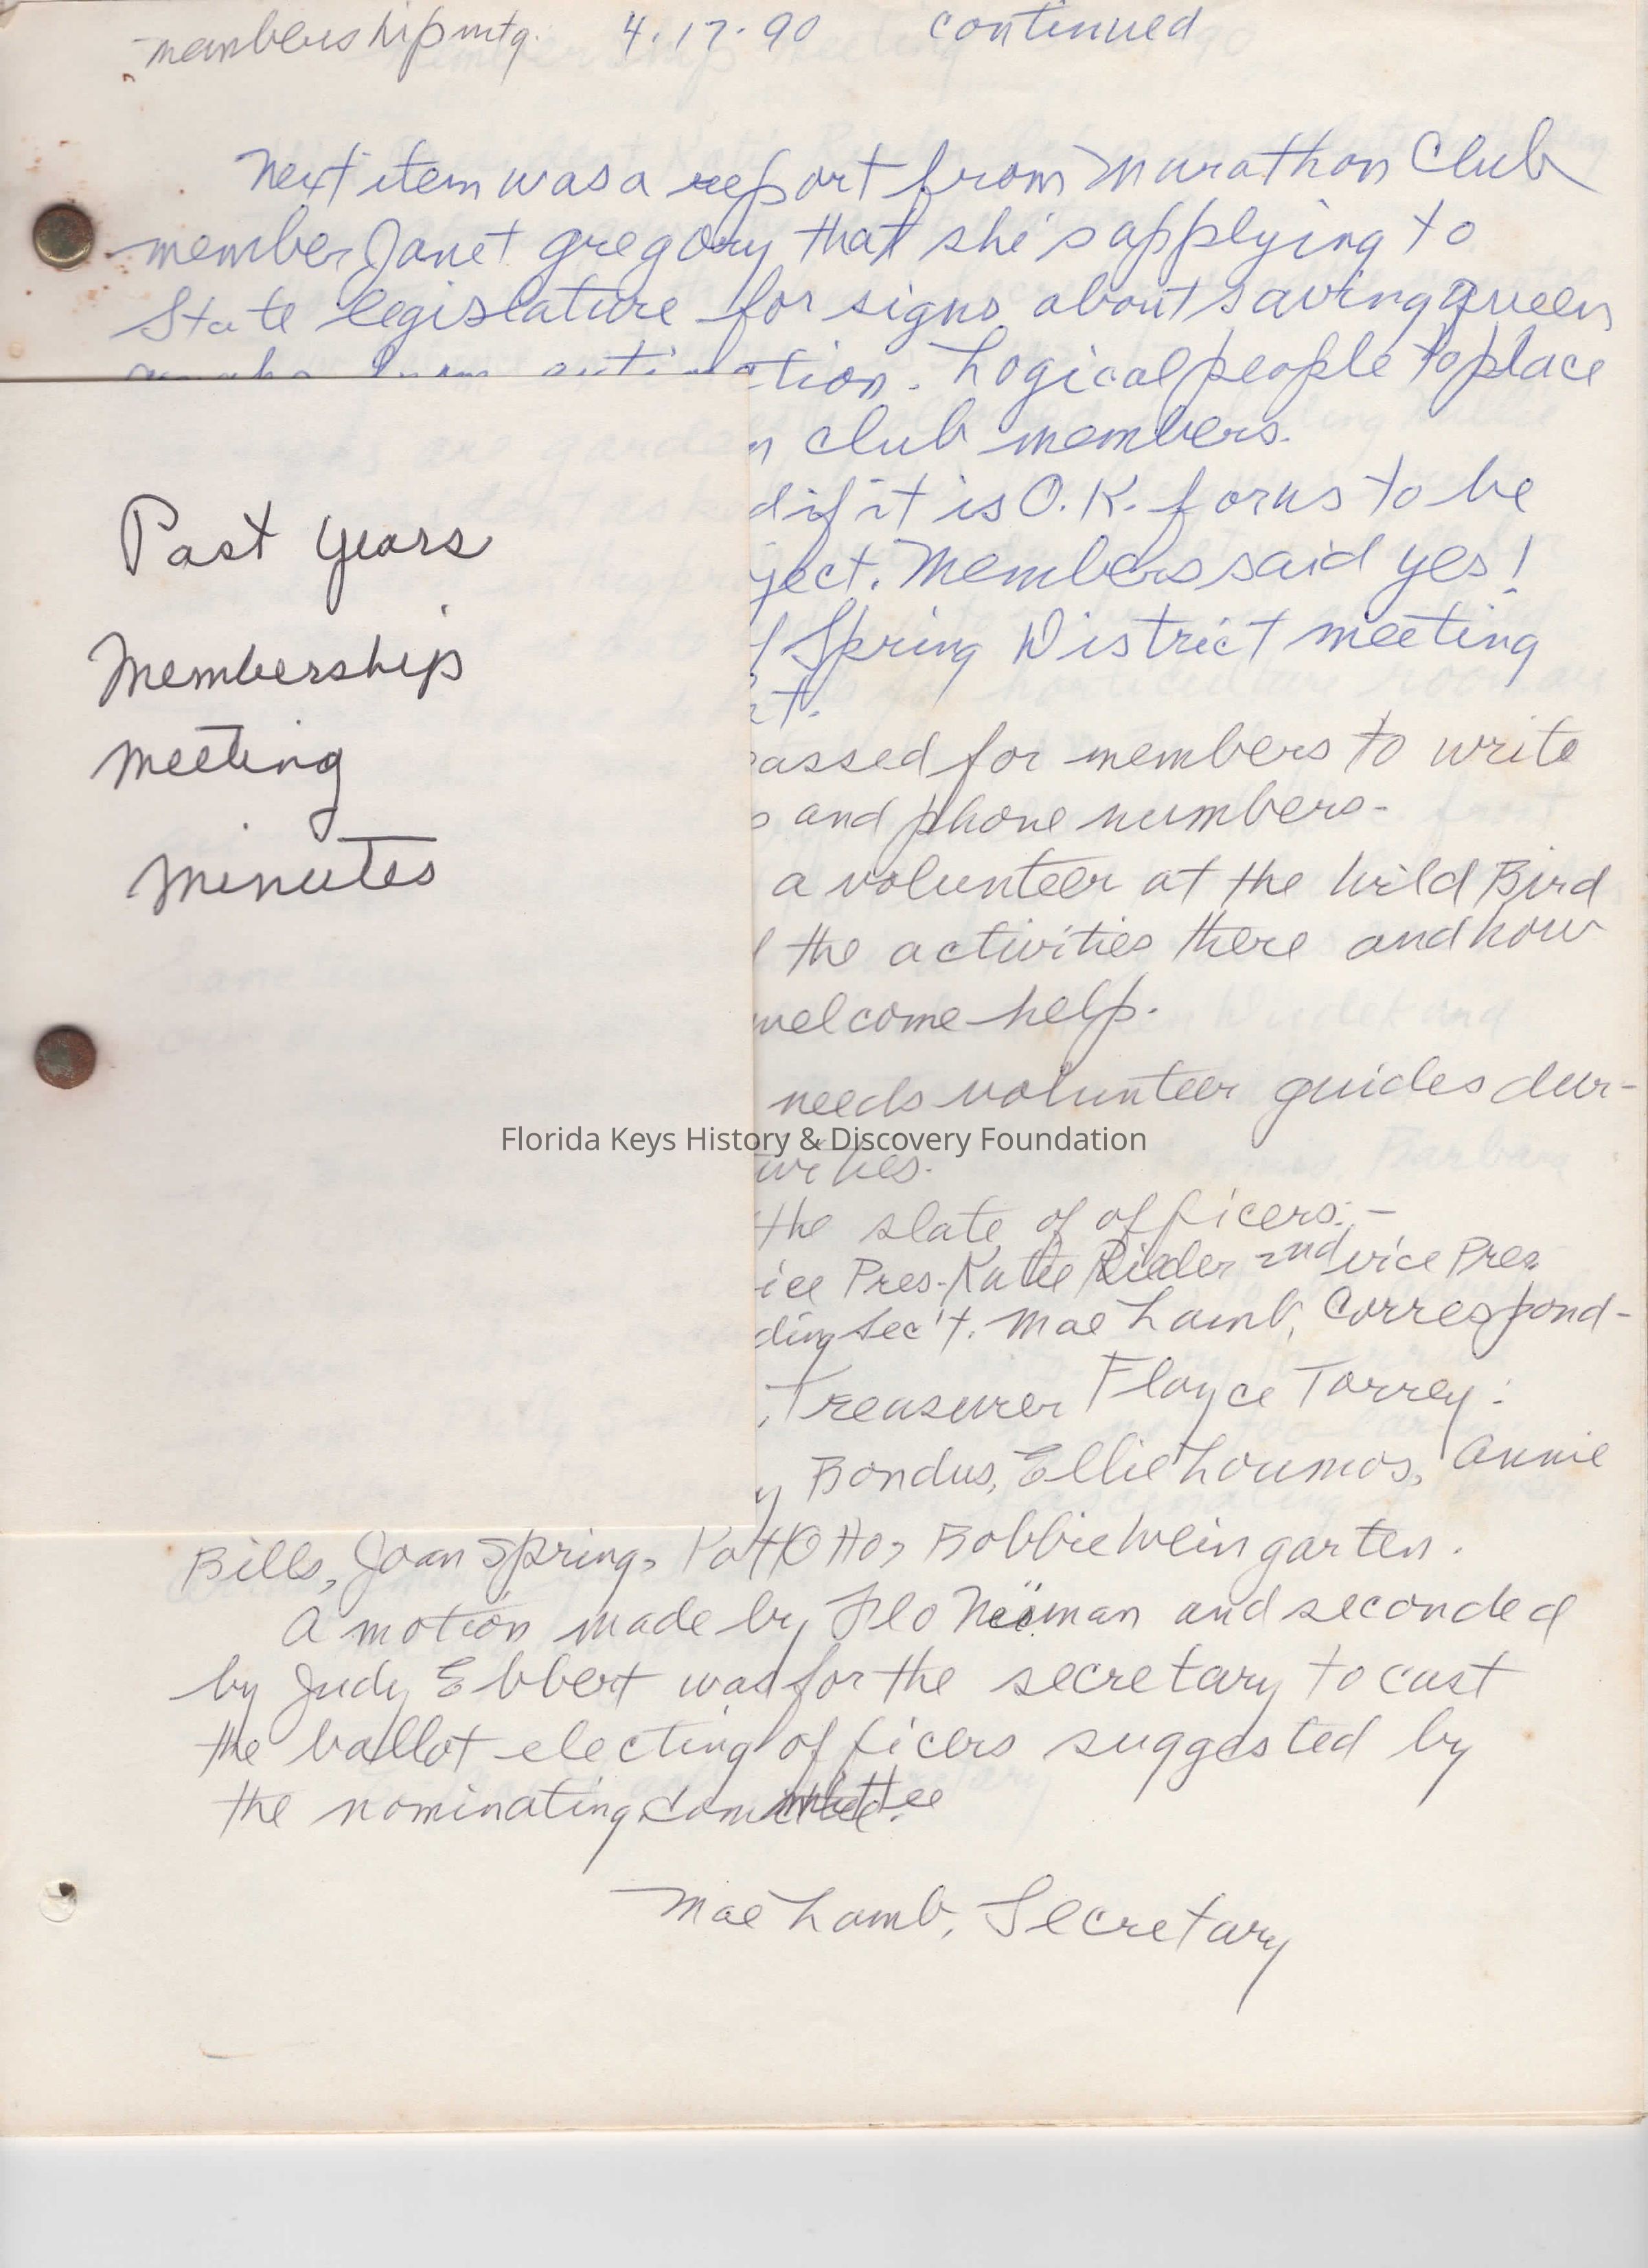 membership mtg. 4.17.90 continued
Next item was a report from Marathon Club
member Janet Gregory that she's applying to
State legislature for signs about saving queen
tion. Logical people to place
club members.
if it is O.K. for us to be
ject. Members said yes!
Spring District meeting
assed for members to write
and phone numbers-
a volunteer at the Wild Bird
the activities there and how
welcome help.
needs volunteer guides dur-
the slate of officers:-
ice Pres.-Katie Rieder 2nd vice Pres
ding Sec't. Mae Lamb, Correspond-
, Treasurer Floyce Torrey:
y Bondus, Ellie Loumos, Annie
Bills, Joan Spring, Patt Otto, Bobbie Weingarten.
A motion made by Flo Neiman and seconded
by Judy Ebbert was for the secretary to cast
the ballot electing officers suggested by
the nominating committee
Mae Lamb, Secretary
Past Years
Membership
Meeting
Minutes
Florida Keys History & Discovery Foundation